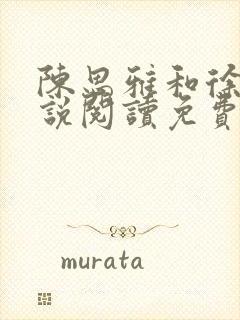 陳思雅和徐
說閱讀免費
murata